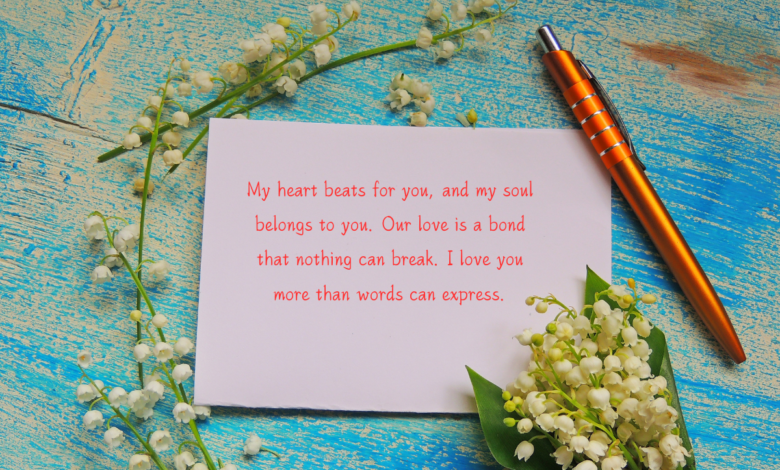 My heart beats for you, and my soul
belongs to you. Our love is a bond
that nothing can break. I love you
more than words can express.